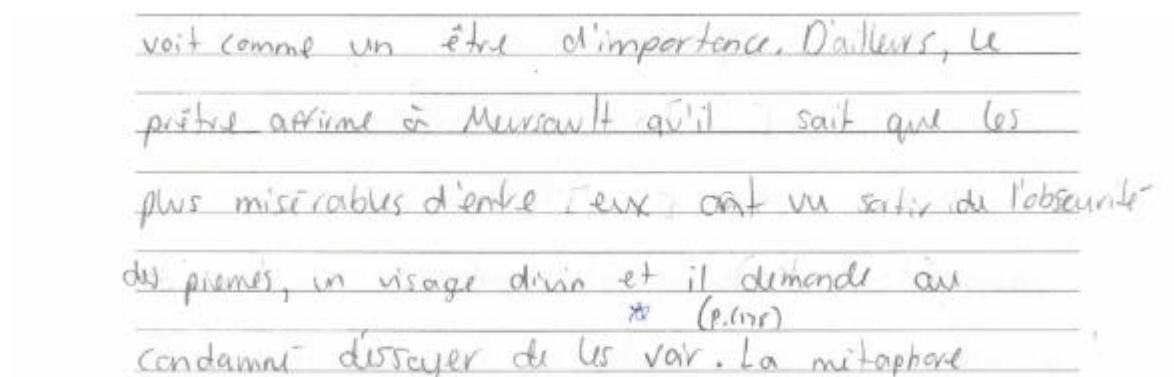 voit comme un être d'importance. D'ailleurs, le
prêtre affirme à Meursault qu'il sait que les
plus misérables d'entre eux ont vu sortir de l'obscurité
des pierres, un visage divin et il demande au
(p.
condamné d'essayer de les voir. La métaphore